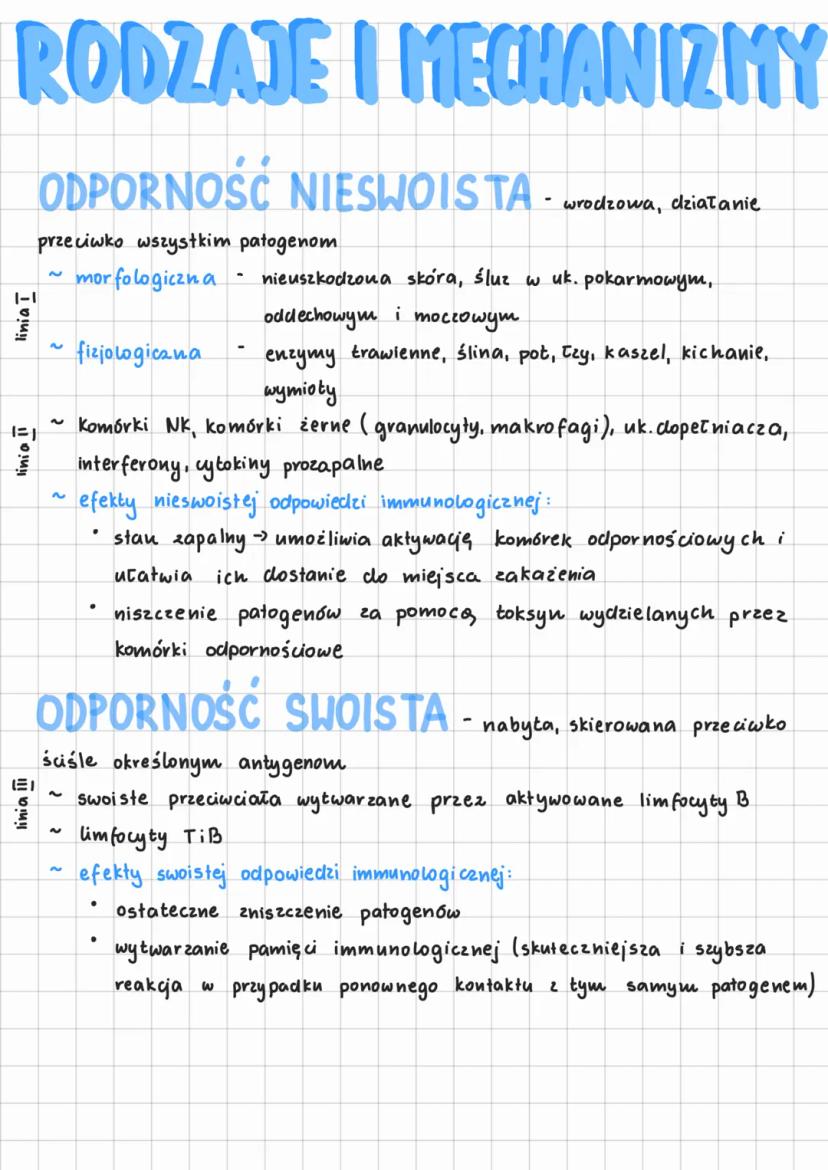 RODZAJE I MECHANIZMY
ODPORNOŚĆ NIESWOISTA - wrodzowa, działanie
przeciwko wszystkim patogenom
linia I
~ morfologiczna - nieuszkodzona skóra, śluz w uk. pokarmowym,
oddechowym i moczowym
~ fizjologiczna - enzymy trawienne, ślina, pot, łzy, kaszel, kichanie,
wymioty
linia II
~ komórki NK, komórki żerne (granulocyty, makrofagi), uk. dopełniacza,
interferony, cytokiny prozapalne
~ efekty nieswoistej odpowiedzi immunologicznej:
• stan zapalny → umożliwia aktywację komórek odpornościowych i
ułatwia ich dostanie do miejsca zakażenia
• niszczenie patogenów za pomocą toksyn wydzielanych przez
komórki odpornościowe
ODPORNOŚĆ SWOISTA - nabyta, skierowana przeciwko
ściśle określonym antygenom
linia III
~ swoiste przeciwciała wytwarzane przez aktywowane limfocyty B
~ limfocyty T i B
~ efekty swoistej odpowiedzi immunologicznej:
• ostateczne zniszczenie patogenów
• wytwarzanie pamięci immunologicznej (skuteczniejsza i szybsza
reakcja w przypadku ponownego kontaktu z tym samym patogenem)